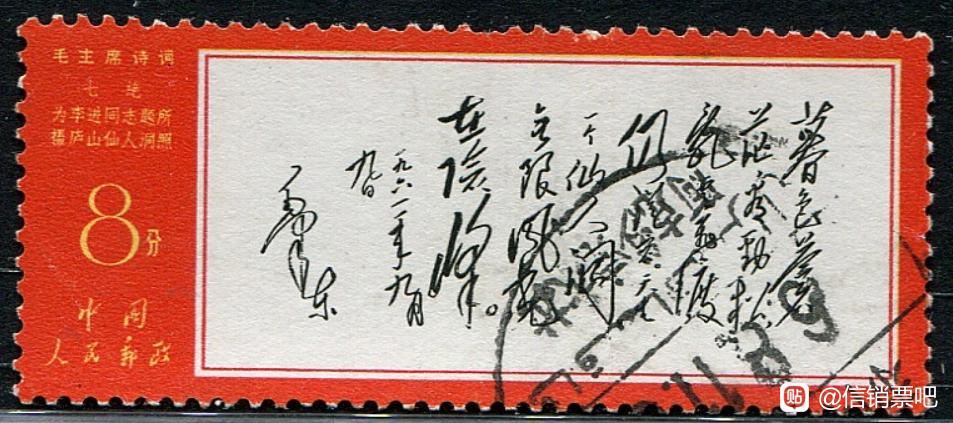 毛主席诗词
七绝
为李进同志题所
摄庐山仙人洞照
8分
中国
人民邮政
暮色苍
茫看劲松
乱云飞渡
仍从容
一个仙人洞
无限风光
在险峰。
一九六一年九月
九日
毛泽东
贴 @信销票吧